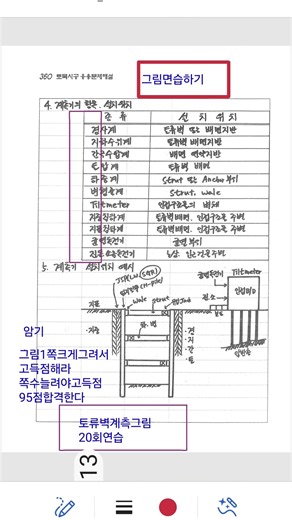 360 토목시공
그림면습하기
4. 계측기의 종류, 설치위치
종류
설치위치
경사계
토류벽 및 배면지반
지하수위계
토류벽 배면지반
간극수압계
배면 연약지반
토압계
토류벽 배면
하중계
strut 및 Anchor부위
변형률계
strut, wale
Tiltmeter
인접구조물의 벽체
지중침하계
토류벽배면, 인접구조물 주변
지표침하계
토류벽배면, 인접구조물 주변
균열측정기
균열부위
5. 계측기 설치위치 예시
균열측정기
Tiltmeter
wale
strut
암기
그림1쪽크게그려서
고득점해라
쪽수늘려야고득점
95점합격한다
토류벽계측그림
20회연습
13